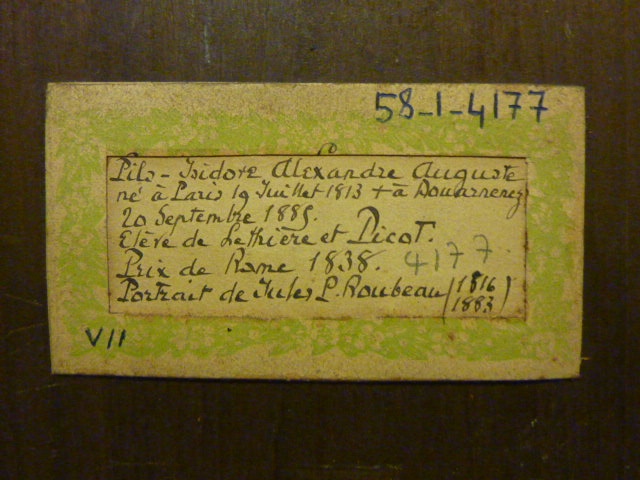 58-1-4177
Pils - Isidore Alexandre Auguste
né à Paris 19 Juillet 1813 + à Douarnenez
20 Septembre 1885.
Elève de Lethière et Picot.
Prix de Rome 1838. 4177.
Portrait de Jules P. Roubeau (1816
1883)
VII